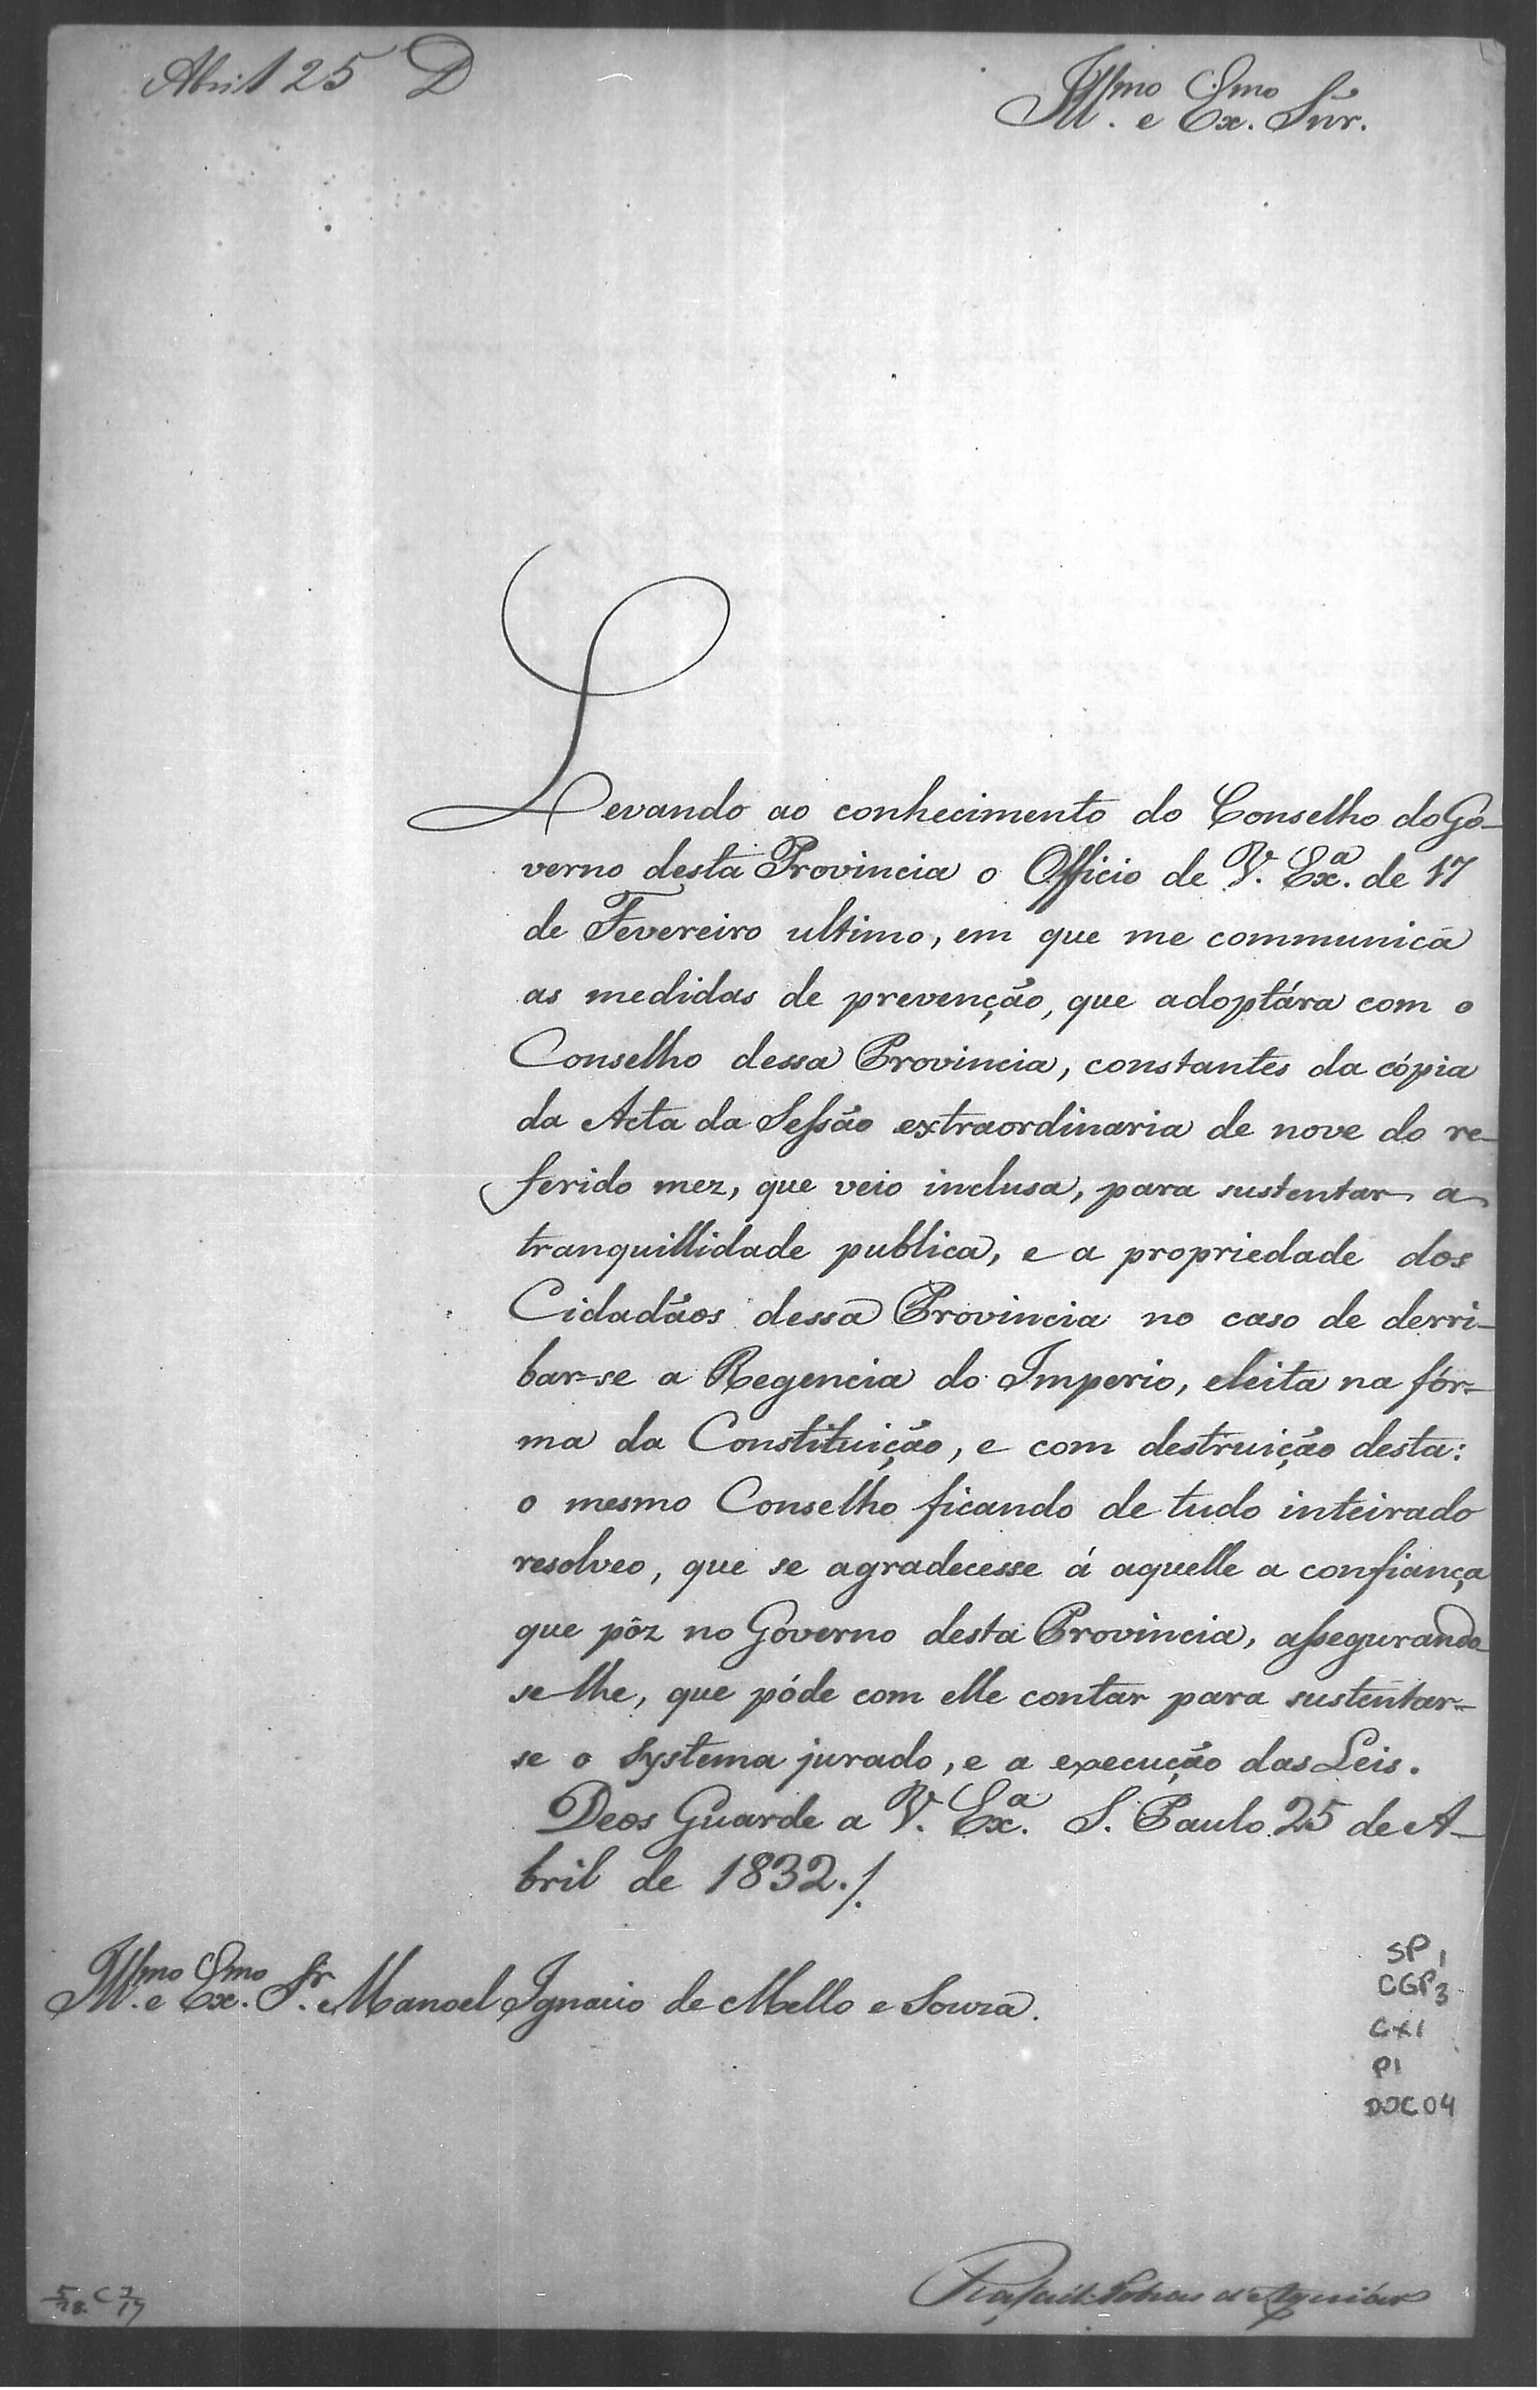 Abril 25 D
Ill.mo e Ex.mo Snr.
Levando ao conhecimento do Conselho do Go-
verno desta Provincia o Officio de V. Ex.a de 17
de Fevereiro ultimo, em que me communica
as medidas de prevenção, que adoptára com o
Conselho dessa Provincia, constantes da cópia
da Acta da Sessão extraordinaria de nove do re-
ferido mez, que veio inclusa, para sustentar a
tranquillidade publica, e a propriedade dos
Cidadãos dessa Provincia no caso de derri-
bar-se a Regencia do Imperio, eleita na fór-
ma da Constituição, e com destruição desta:
o mesmo Conselho ficando de tudo inteirado
resolveo, que se agradecesse á aquelle a confiança
que pôz no Governo desta Provincia, assegurando
se lhe, que póde com elle contar para sustentar-
se o systema jurado, e a execução das Leis.
Deos Guarde a V. Ex.a S. Paulo 25 de A-
bril de 1832./.
Ill.mo e Ex.mo Sr. Manoel Ignacio de Mello e Souza.
SP1
CGP3
CX1
P1
DOC04
Rafael Tobias de Aguiar